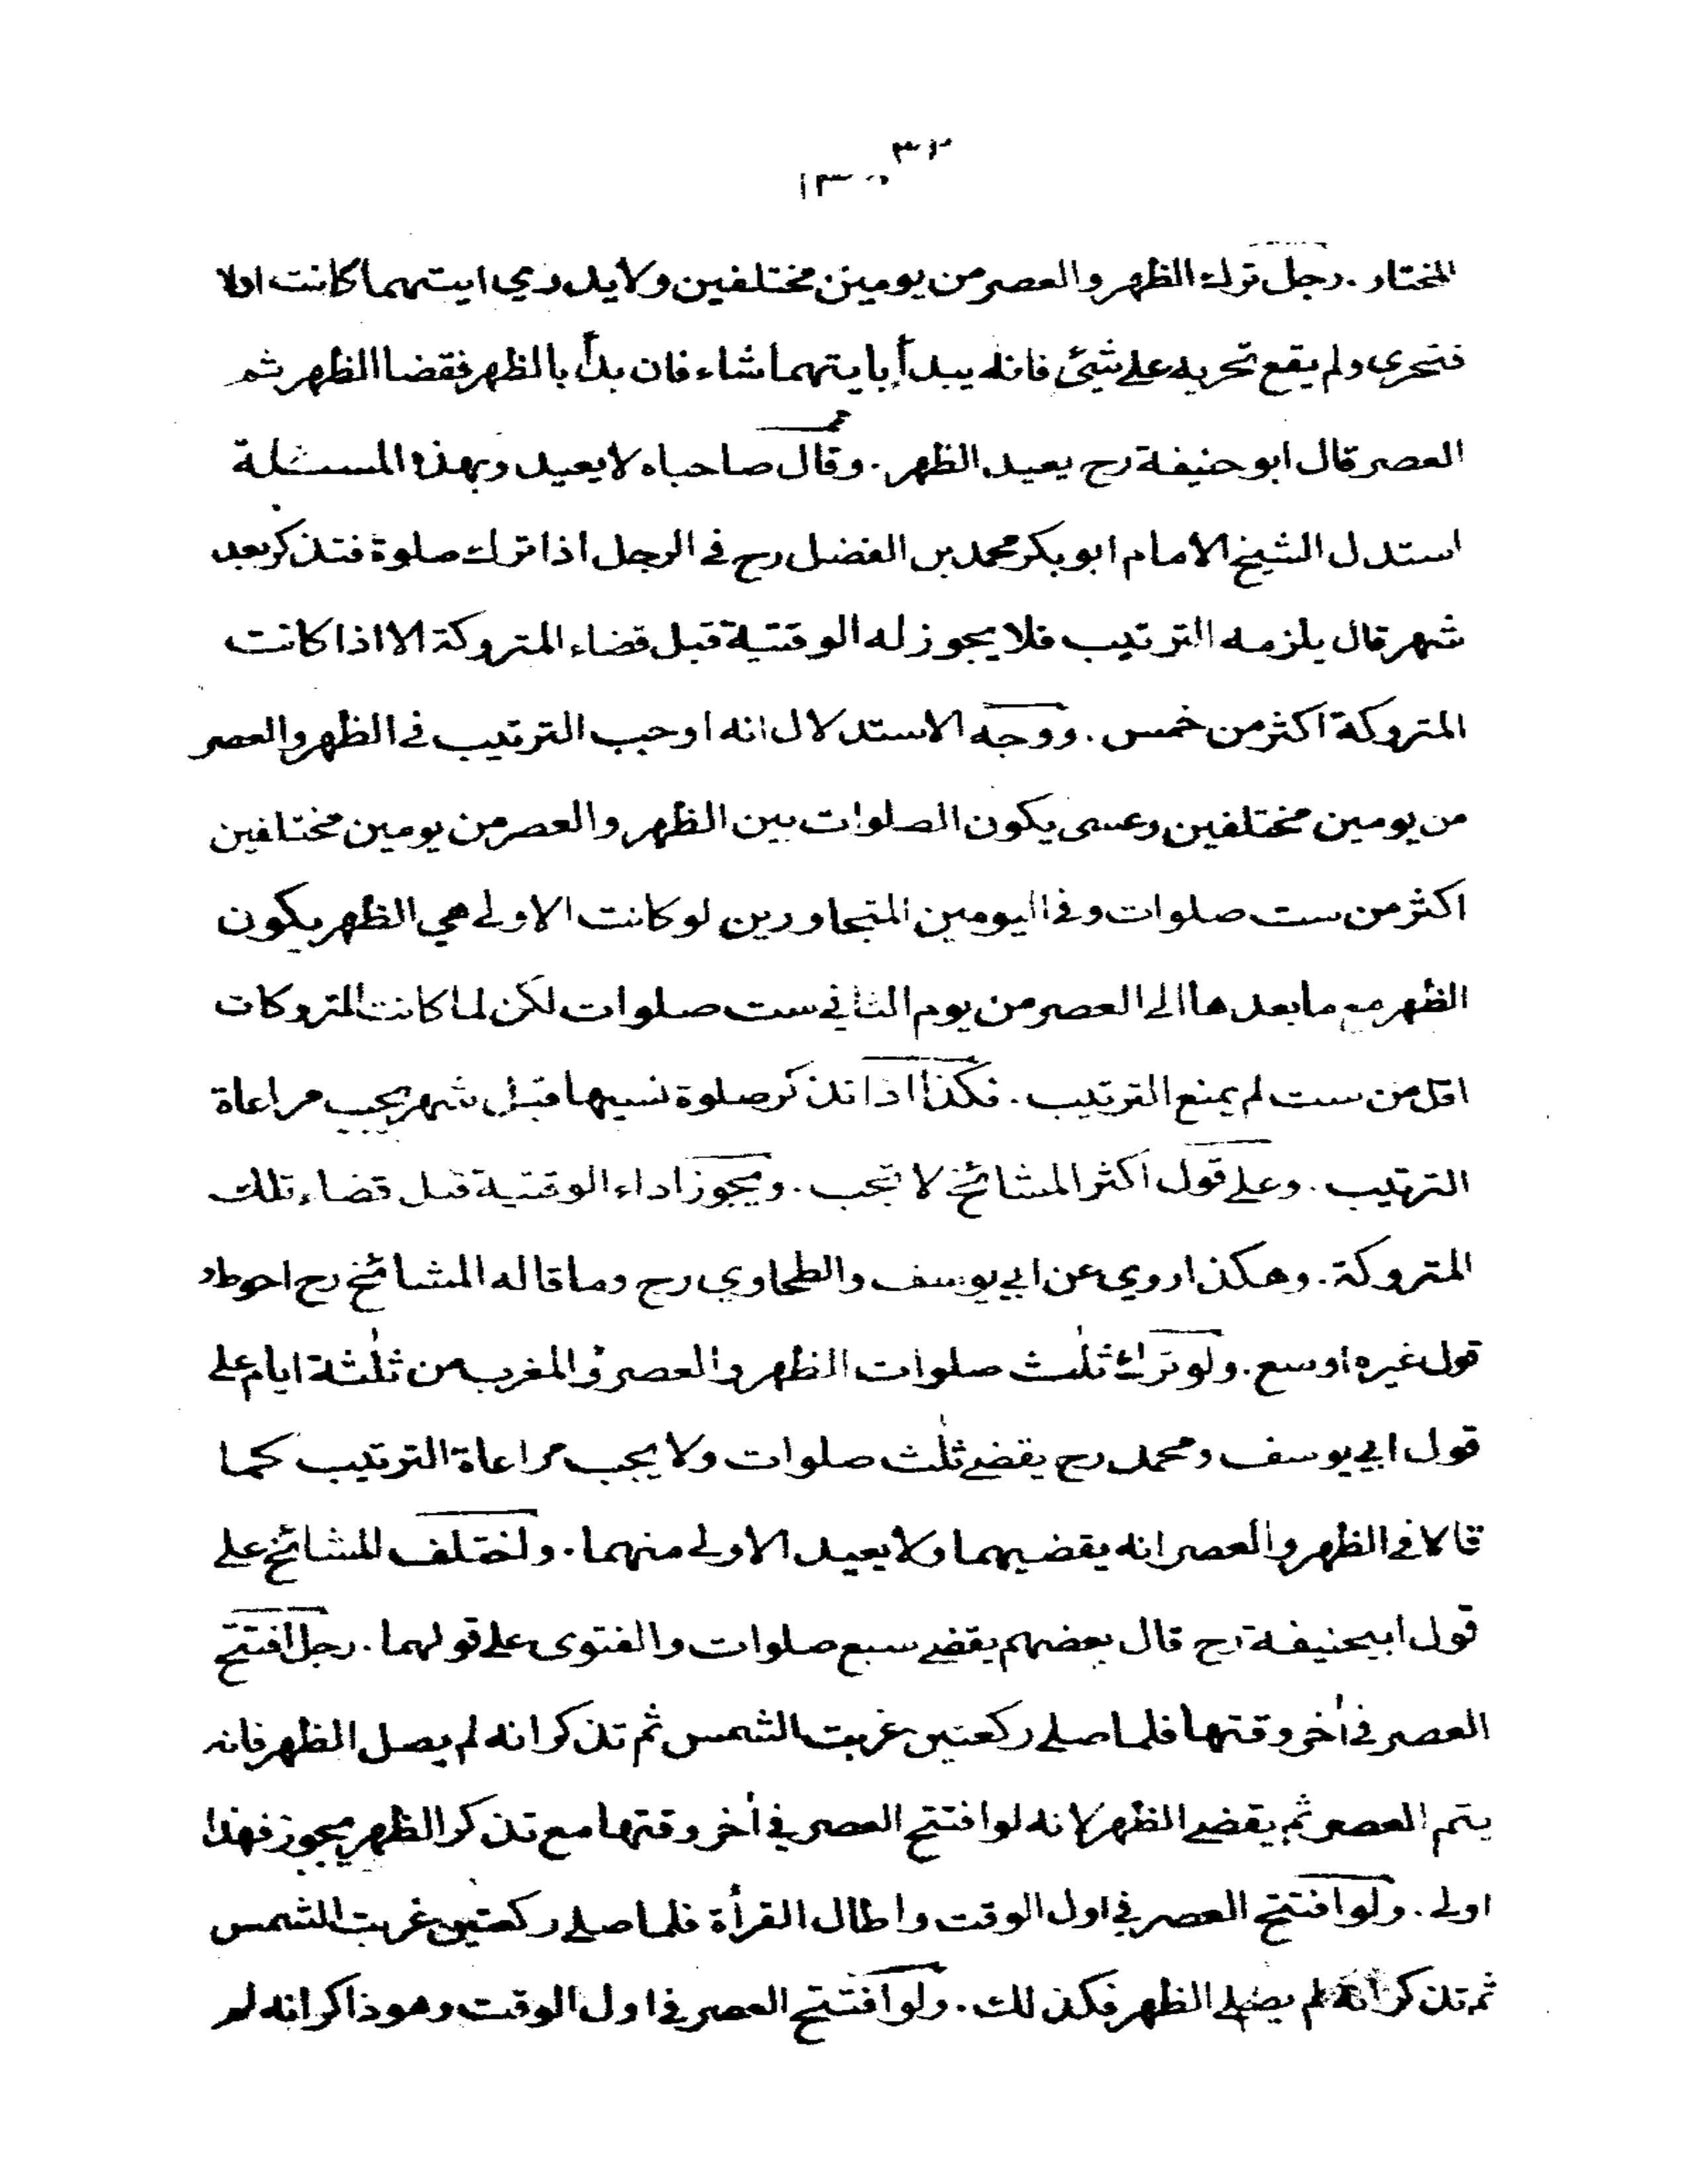 المختار . رجل ترك الظهر والعصر من يومين مختلفين ولا يدري ايتهما كانت اولا
فتحرى ولم يقع تحريه على شيئ فانه يبدأ بايتهما شاء فان بدأ بالظهر فقضا الظهر ثم
العصر قال ابو حنيفة رح يعيد الظهر . وقال صاحباه لا يعيد وبهذه المسئلة
استدل الشيخ الامام ابو بكر محمد بن الفضل رح في الرجل اذا ترك صلوة فتذكر بعد
شهر قال يلزمه الترتيب فلا يجوز له الوقتية قبل قضاء المتروكة الا اذا كانت
المتروكة اكثر من خمس . ووجه الاستدلال انه اوجب الترتيب في الظهر والعصر
من يومين مختلفين وعسى يكون الصلوات بين الظهر والعصر من يومين مختلفين
اكثر من ست صلوات وفي اليومين المتجاورين لو كانت الاولى هي الظهر يكون
الظهر مع ما بعدها الى العصر من يوم الثاني ست صلوات لكن لما كانت المتروكات
اقل من ست لم يمنع الترتيب . فكذا اذا تذكر صلوة نسيها قبل شهر يجب مراعاة
الترتيب . وعلى قول اكثر المشائخ لا تجب . ويجوز اداء الوقتية قبل قضاء تلك
المتروكة . وهكذا روي عن ابي يوسف والطحاوي رح وما قاله المشائخ رح احوط و
قول غيره اوسع . ولو ترك ثلٰث صلوات الظهر والعصر والمغرب من ثلٰثة ايام على
قول ابي يوسف ومحمد رح يقضي ثلٰث صلوات ولا يجب مراعاة الترتيب كما
قالا في الظهر والعصر انه يقضيهما ولا يعيد الاولى منهما . واختلف المشائخ على
قول ابيحنيفة رح قال بعضهم يقضي سبع صلوات والفتوى على قولهما . رجل افتتح
العصر في اٰخر وقتها فلما صلى ركعتين غربت الشمس ثم تذكر انه لم يصل الظهر فانه
يتم العصر ثم يقضي الظهر لانه لو افتتح العصر في اٰخر وقتها مع تذكر الظهر يجوز فهذا
اولى . ولو افتتح العصر في اول الوقت واطال القرأة فلما صلى ركعتين غربت الشمس
ثم تذكر انه لم يصلي الظهر فكذلك . ولو افتتح العصر في اول الوقت وهو ذاكر انه لم